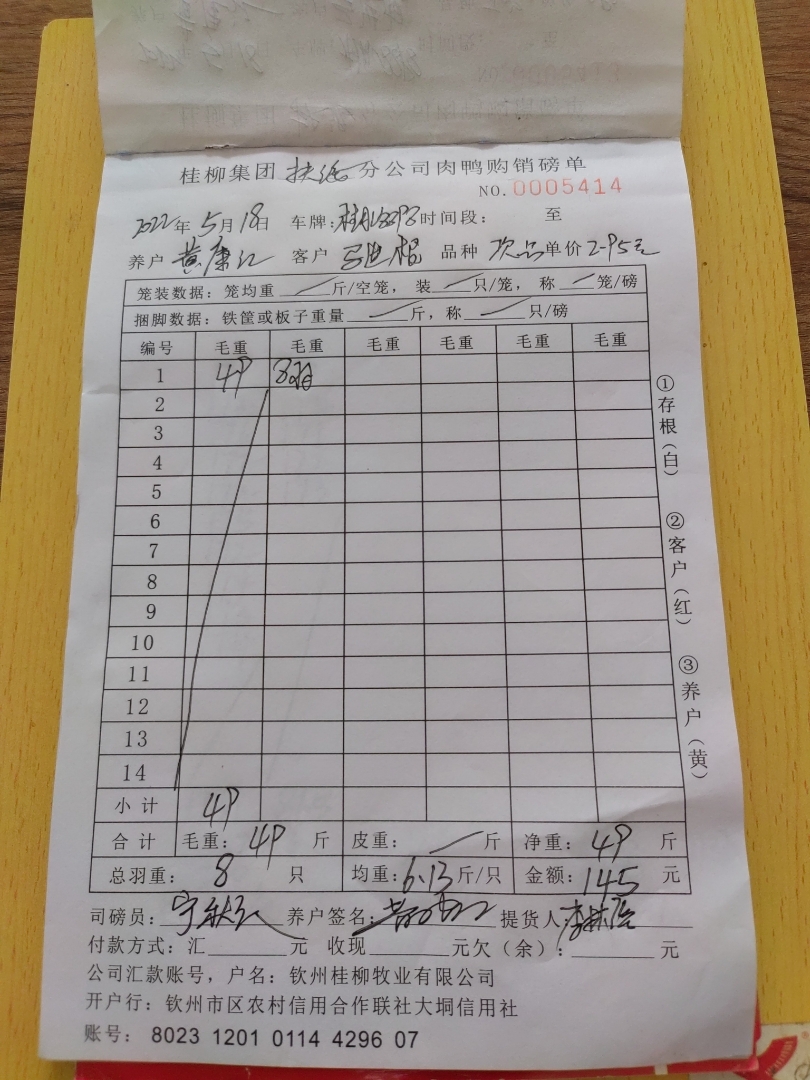 桂柳集团 分公司肉鸭购销磅单
NO.0005414
2022年5月18日 车牌: 时间段: 至
养户 黄康江 客户 品种 次品 单价 2.95元
笼装数据:笼均重 斤/空笼,装 只/笼,称 笼/磅
捆脚数据:铁筐或板子重量 斤,称 只/磅
编号 毛重 毛重 毛重 毛重 毛重 毛重
1 49 8羽
2
3
4
5
6
7
8
9
10
11
12
13
14
小计 49
合计 毛重: 49 斤 皮重: 斤 净重: 49 斤
总羽重: 8 只 均重: 6.13 斤/只 金额: 145 元
司磅员: 养户签名: 提货人
付款方式:汇 元 收现 元欠(余): 元
公司汇款账号,户名:钦州桂柳牧业有限公司
开户行:钦州市区农村信用合作联社大垌信用社
账号: 8023 1201 0114 4296 07
①存根(白)
②客户(红)
③养户(黄)